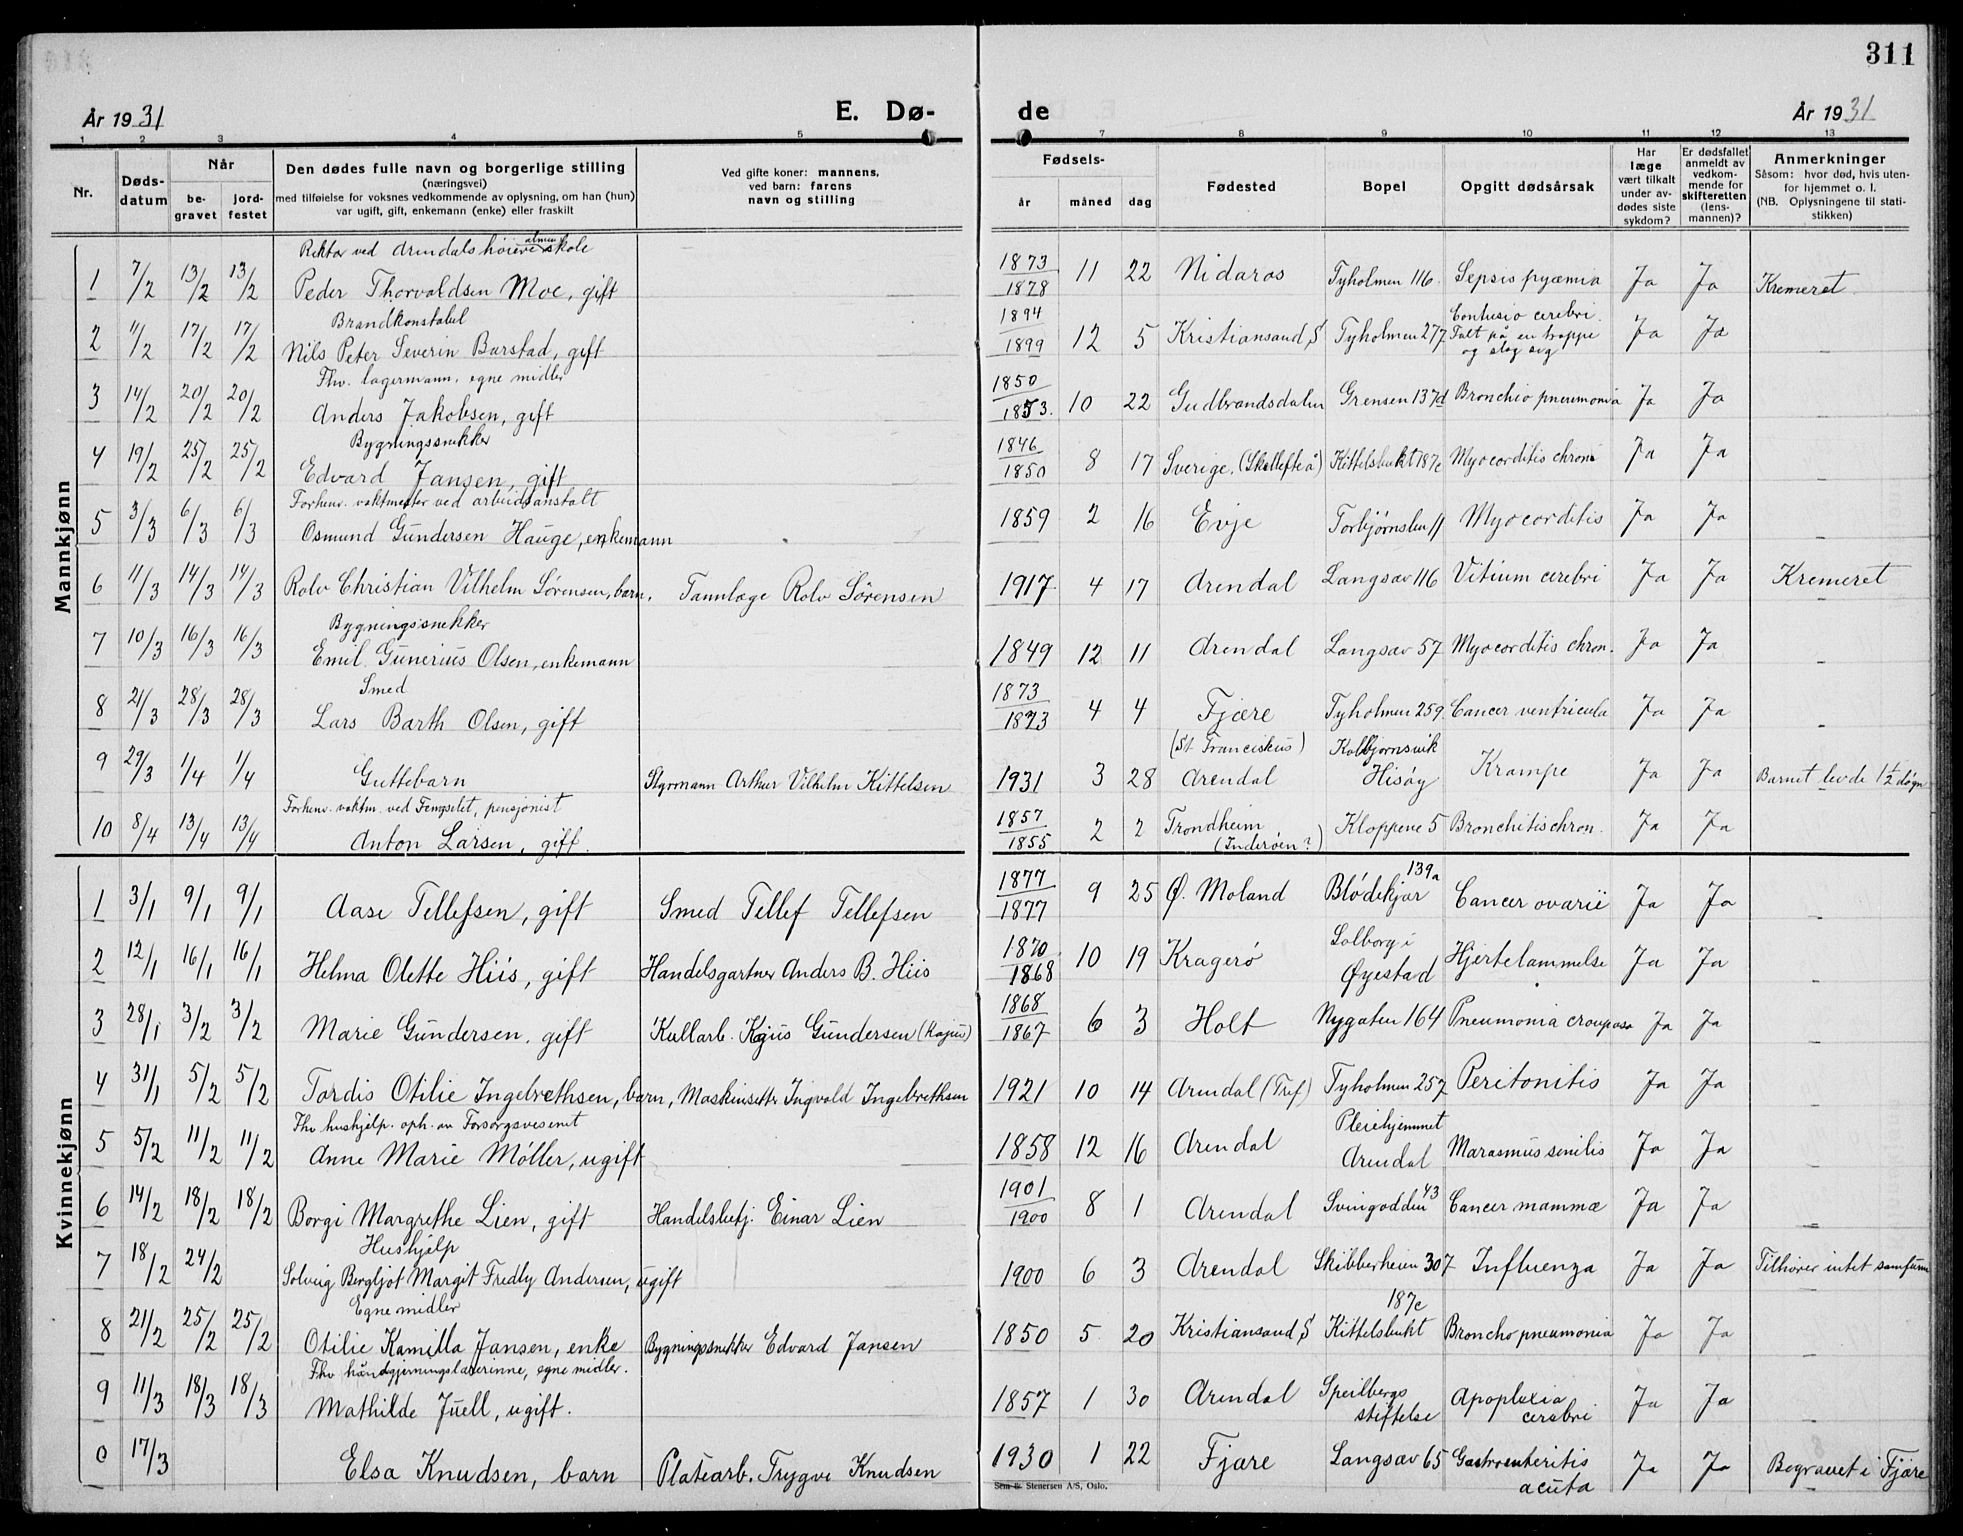 311
År 1931 E. Dø- de År 1931
1 2 3 4 5 7 8 9 10 11 12 13
Nr. Døds-datum Når be-gravet jord-festet Den dødes fulle navn og borgerlige stilling (næringsvei) med tilføielse for voksnes vedkommende av oplysning, om han (hun) var ugift, gift, enkemann (enke) eller fraskilt Ved gifte koner: mannens, ved barn: farens navn og stilling Fødsels- år måned dag Fødested Bopel Opgitt dødsårsak Har læge vært tilkalt under av-dødes siste sykdom? Er dødsfallet anmeldt av vedkom-mende for skifteretten (lens-mannen)? Anmerkninger Såsom: hvor død, hvis uten-for hjemmet o. l. (NB. Oplysningene til stati-stikken)
Mannkjønn
Rektor ved Arendals høiere almenskole
1 7/2 13/2 13/2 Peder Thorvaldsen Moe, gift 1873 1878 11 22 Nidaros Tyholmen 116 Sepsis pyæmia Ja Ja Kremeret
Brandkonstabel
2 11/2 17/2 17/2 Nils Peter Severin Barstad, gift 1894 1899 12 5 Kristiansand, S Tyholmen 277 Contusio cerebri. Falt på en trappe og slog sig Ja Ja —
Fhv. lagermann. egne midler
3 14/2 20/2 20/2 Anders Jakobsen, gift 1850 1853. 10 22 Gudbrandsdalen Grensen 137d Bronchio pneumonia Ja Ja —
Bygningssnekker
4 19/2 25/2 25/2 Edvard Jansen, gift 1846 1850 8 17 Sverige. (Skellefteå) Kittelsbukt 187c Myocarditis chron Ja Ja —
Forhenv. vaktmester ved arbeidsanstalt
5 3/3 6/3 6/3 Osmund Gundersen Hauge, enkemann 1859 2 16 Evje Torbjørnsbu 11 Myocarditis Ja Ja —
6 11/3 14/3 14/3 Rolv Christian Vilhelm Sørensen, barn, Tannlæge Rolv Sørensen 1917 4 17 Arendal Langsæv 116 Vitium cerebri Ja Ja Kremeret
Bygningssnekker
7 10/3 16/3 16/3 Emil Gunerius Olsen, enkemann 1849 12 11 Arendal Langsæv 57 Myocarditis chron. Ja Ja —
Smed
8 21/3 28/3 28/3 Lars Barth Olsen, gift 1873 1873 4 4 Fjære Tyholmen 259 Cancer ventricula Ja Ja —
9 29/3 1/4 1/4 Guttebarn Styrmann Arthur Vilhelm Kittelsen 1931 3 28 (St. Franciskus) Arendal Kolbjørnsvik Hisøy Krampe Ja Ja Barnet levde 1 1/2 døgn
Forhenv. vaktm. ved Fengselet, pensjonist
10 8/4 13/4 13/4 Anton Larsen, gift. 1857 1855 2 2 Trondheim (Inderøen?) Kloppene 5 Bronchitis chron. Ja Ja —
Kvinnekjønn
1 3/1 9/1 9/1 Aase Tellefsen, gift Smed Tellef Tellefsen 1877 1877 9 25 Ø. Moland Blødekjær 139a Cancer ovarii Ja Ja —
2 12/1 16/1 16/1 Helma Olette Hiis, gift Handelsgartner Anders B. Hiis 1870 1868 10 19 Kragerø Solborg i Øyestad Hjertelammelse Ja Ja —
3 28/1 3/2 3/2 Marie Gundersen, gift Kullarb. Kajus Gundersen (Kajus) 1868 1867 6 3 Holt Nygaten 164 Pneumonia crouposa Ja Ja —
4 31/1 5/2 5/2 Tordis Otilie Ingebrethsen, barn, Maskinsetter Ingvald Ingebrethsen 1921 10 14 Arendal (Tref) Tyholmen 257 Peritonitis Ja Ja —
Fhv. hushjelp. oph. av Forsorgsvesenet
5 5/2 11/2 11/2 Anne Marie Møller, ugift 1858 12 16 Arendal Pleiehjemmet Arendal Marasmus senilis Ja Ja —
6 14/2 18/2 18/2 Borgi Margrethe Lien, gift Handelsbetj. Einar Lien 1901 1900 8 1 Arendal Svingodden 43 Cancer mammæ Ja Ja —
Hushjelp
7 18/2 24/2 Solveig Bergljot Margit Fredly Andersen, ugift 1900 6 3 Arendal Skibberheien 307 Influenza Ja Ja Tilhører intet samfunn
Egne midler
8 21/2 25/2 25/2 Otilie Kamilla Jansen, enke Bygningssnekker Edvard Jansen 1850 5 20 Kristiansand, S Kittelsbukt 187c Broncho pneumonia Ja Ja —
Fhv håndgjerningslærerinne, egne midler.
9 11/3 18/3 18/3 Mathilde Juell, ugift. 1857 1 30 Arendal Speilbergs stiftelse Apoplexia cerebri Ja Ja —
0 17/3 Elsa Knudsen, barn Platearb. Trygve Knudsen 1930 1 22 Fjære Langsæv 65 Gastroenteritis acuta Ja Ja Begravet i Fjære
Sem & Stenersen A/S, Oslo.